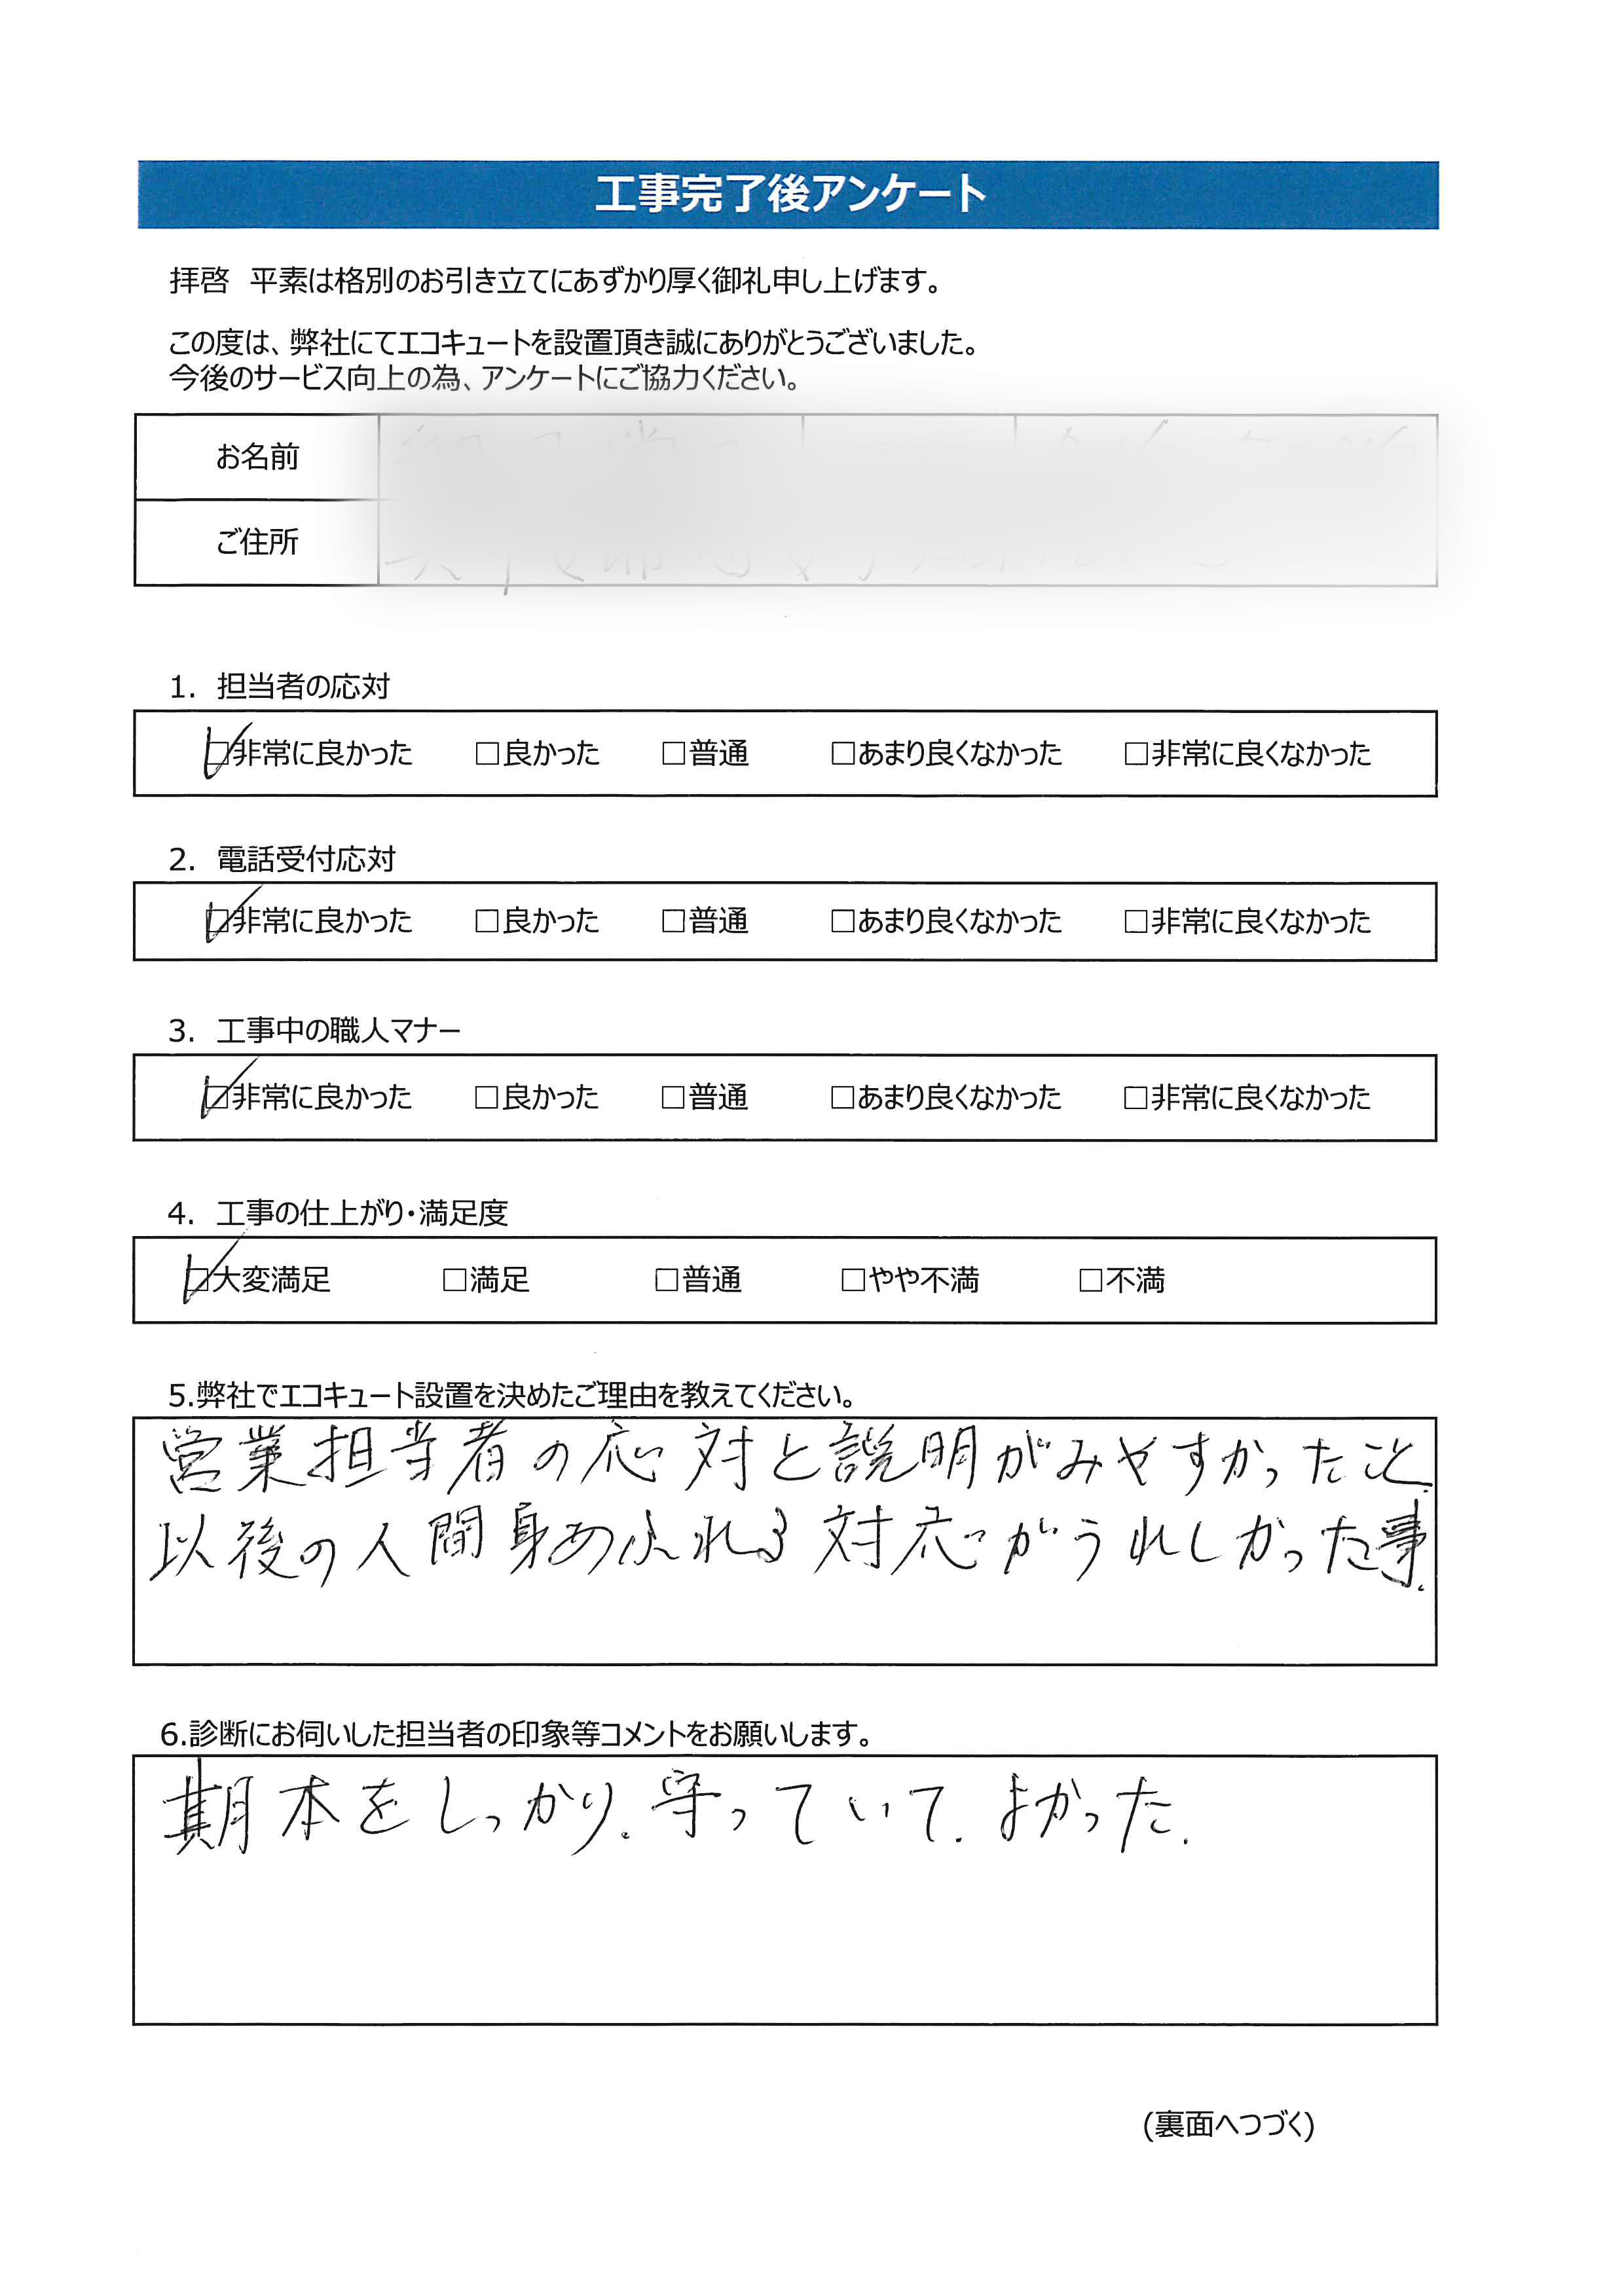 工事完了後アンケート
拝啓　平素は格別のお引き立てにあずかり厚く御礼申し上げます。
この度は、弊社にてエコキュートを設置頂き誠にありがとうございました。
今後のサービス向上の為、アンケートにご協力ください。
お名前
ご住所
1.　担当者の応対
☑非常に良かった　□良かった　□普通　□あまり良くなかった　□非常に良くなかった
2.　電話受付応対
☑非常に良かった　□良かった　□普通　□あまり良くなかった　□非常に良くなかった
3.　工事中の職人マナー
☑非常に良かった　□良かった　□普通　□あまり良くなかった　□非常に良くなかった
4.　工事の仕上がり・満足度
☑大変満足　□満足　□普通　□やや不満　□不満
5.弊社でエコキュート設置を決めたご理由を教えてください。
営業担当者の応対と説明がみやすかったこと.
以後の人間身あふれる対応がうれしかった事.
6.診断にお伺いした担当者の印象等コメントをお願いします。
期本をしっかり.守っていて.よかった.
(裏面へつづく)